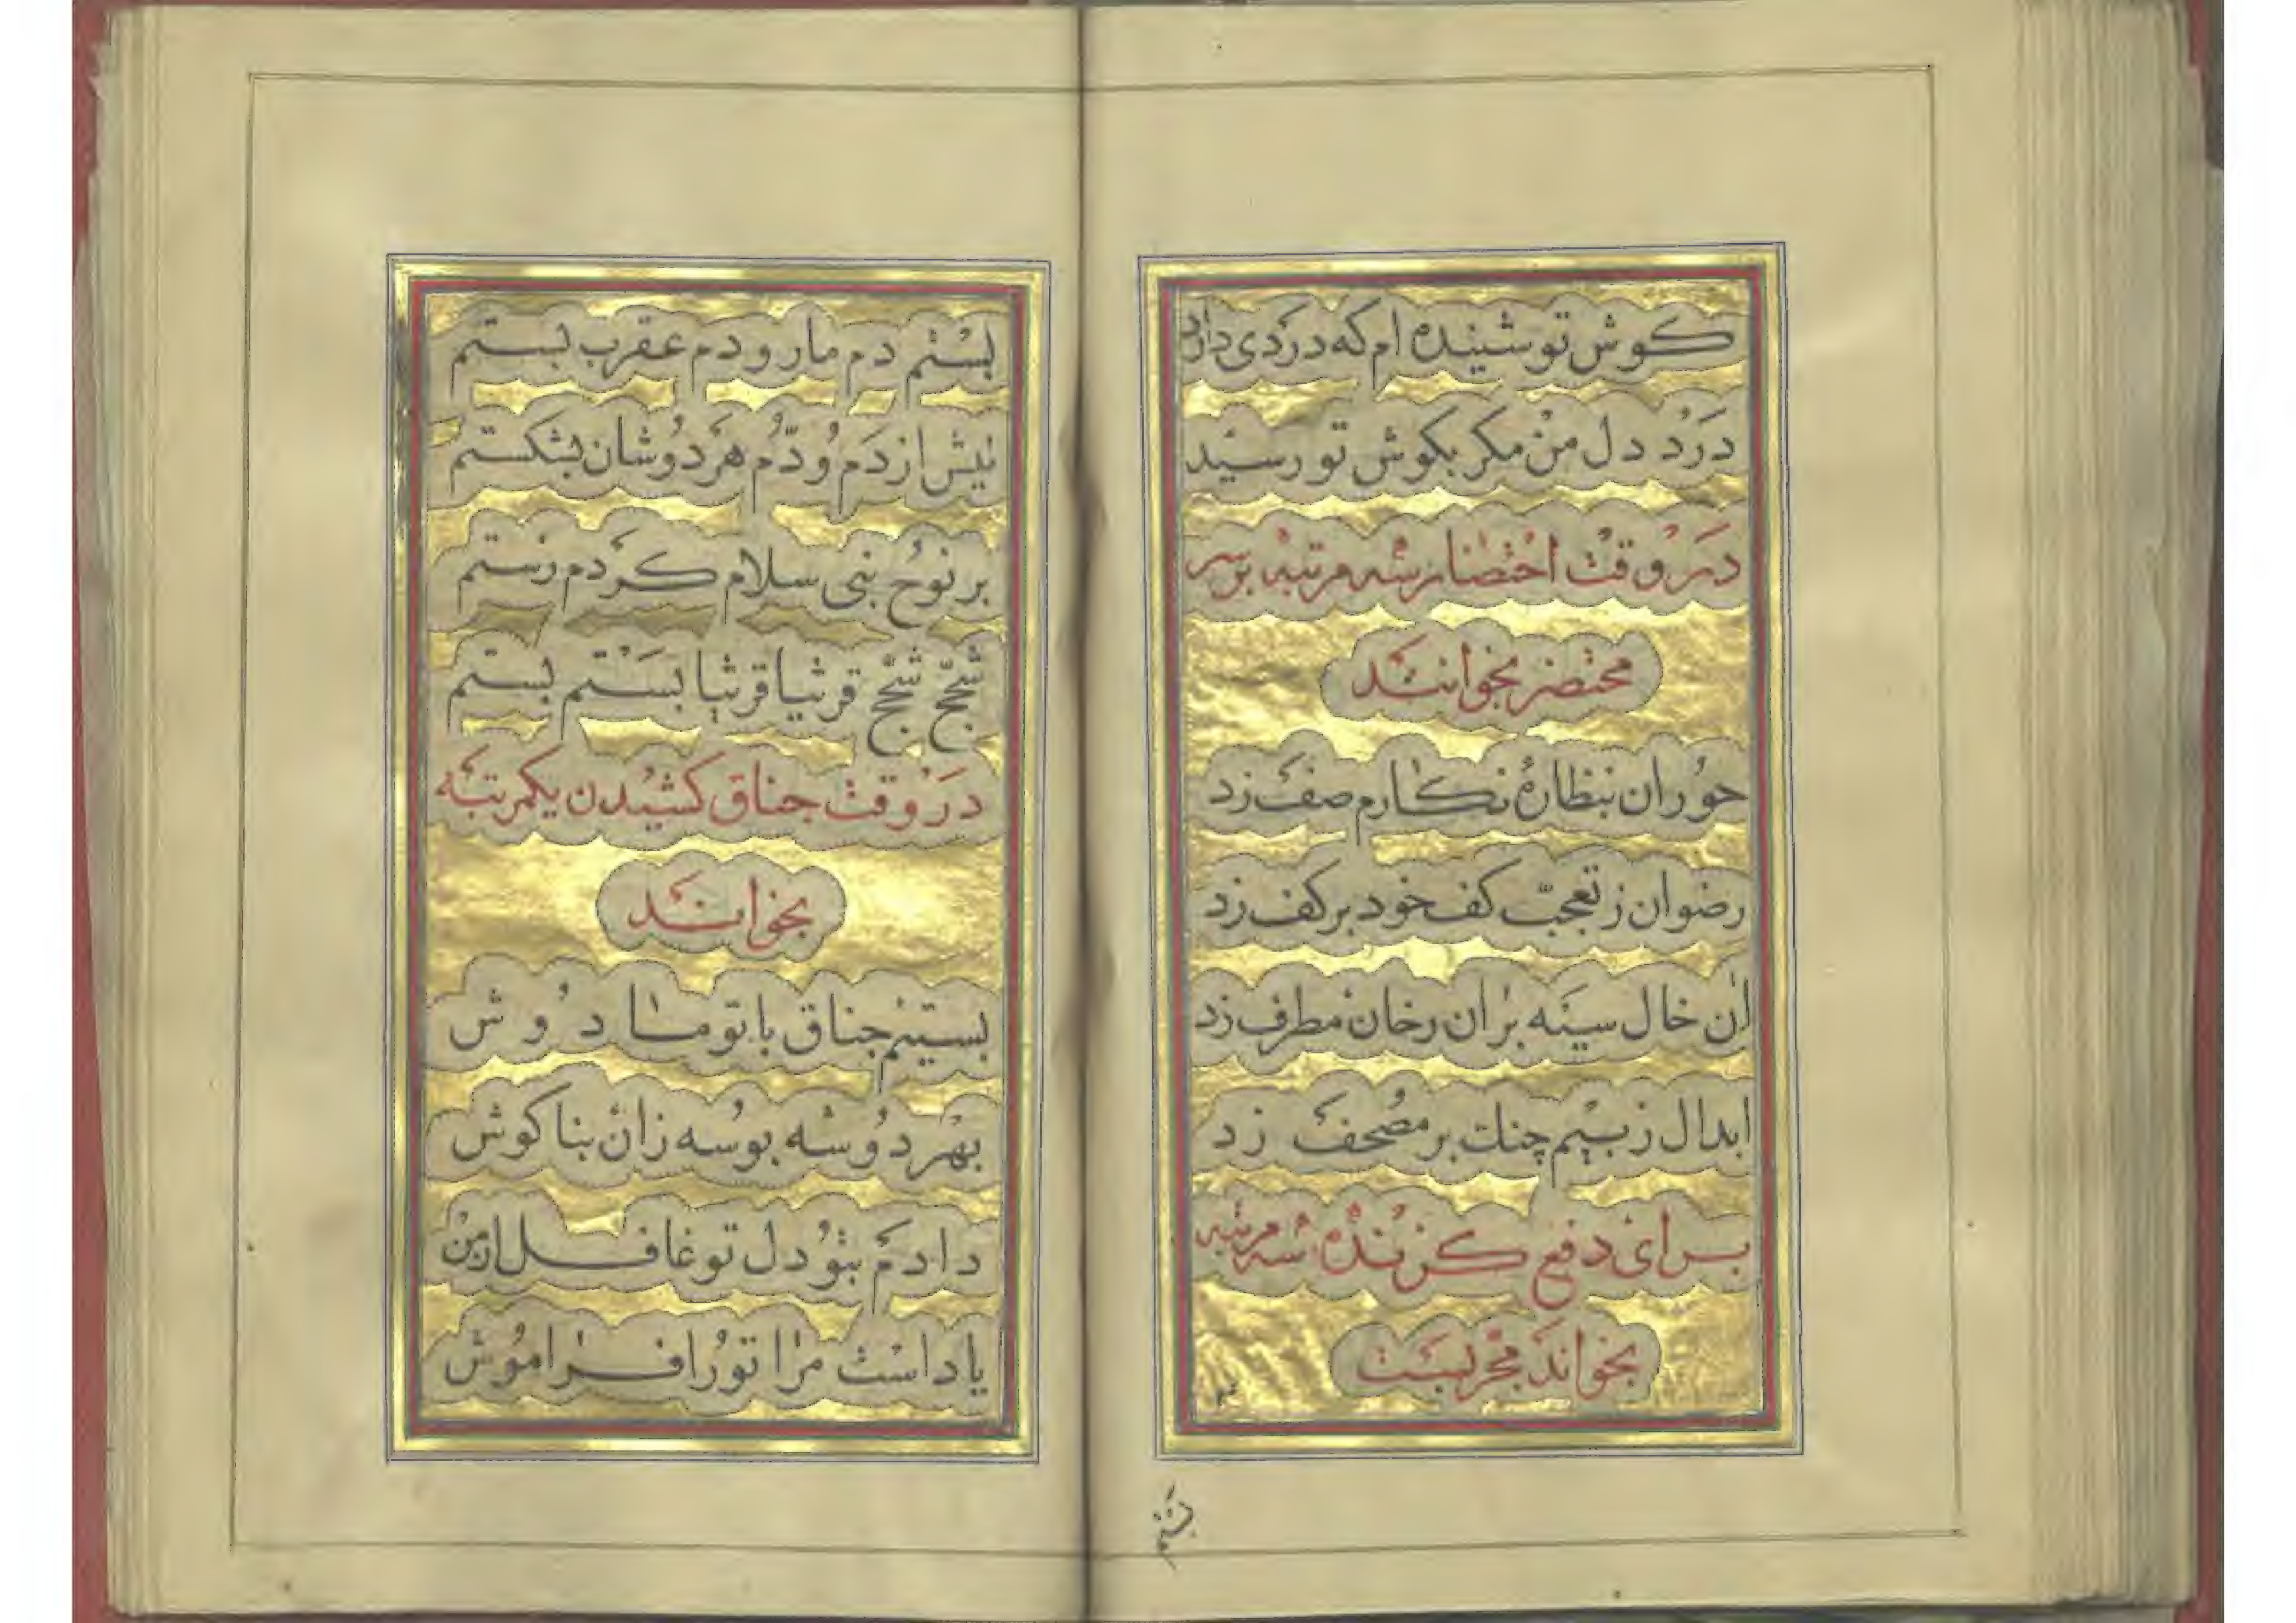 کوش تو شینده ام که دردی دارد
درد دل من مکر بکوش تو رسید
در وقت احتضار سه مرتبه بر سر
محتضر بخوانند
حوران بنظارهٔ نکارم صف زد
رضوان ز تعجب کف خود بر کف زد
ان خال سیه بران رخان مطرف زد
ابدال ز بیم چنک بر مصحف زد
برای دفع کزنده سه مرتبه
بخواند مجربست
بستم
بستم دم مار و دم عقرب بستم
نیش از دم و دم هردوشان بشکستم
بر نوح نبی سلام کردم رستم
شجّ شجّ قرنیا قرنیا بستم بستم
در وقت جناق کشیدن یکمرتبه
بخوانند
بستیم جناق با تو ما دوش
بهر دوسه بوسه زان بناکوش
دادم بتو دل تو غافل از من
یاد است مرا تو را فراموش